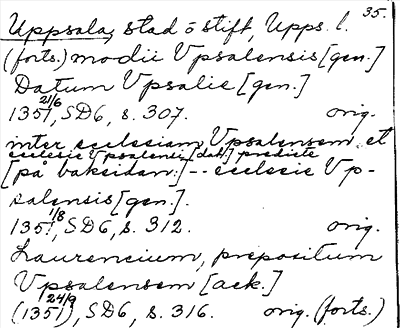 35.
Uppsala, stad o stift, Upps. l.
(forts.) modii Vpsalensis [gen.]
Datum Vpsalie [gen.]
21/6
1351, SD6, s. 307. orig.
inter ecclesiam Vpsalensem et
ecclesie Vpsalensi [dat.] predicte
[på baksidan:] -- ecclesie Vp-
salensis [gen.].
1/8
1351, SD6, s. 312. orig.
Laurencium, prepositum
Vpsalensem [ack.]
24/9
(1351), SD6, s. 316. orig. (forts.)